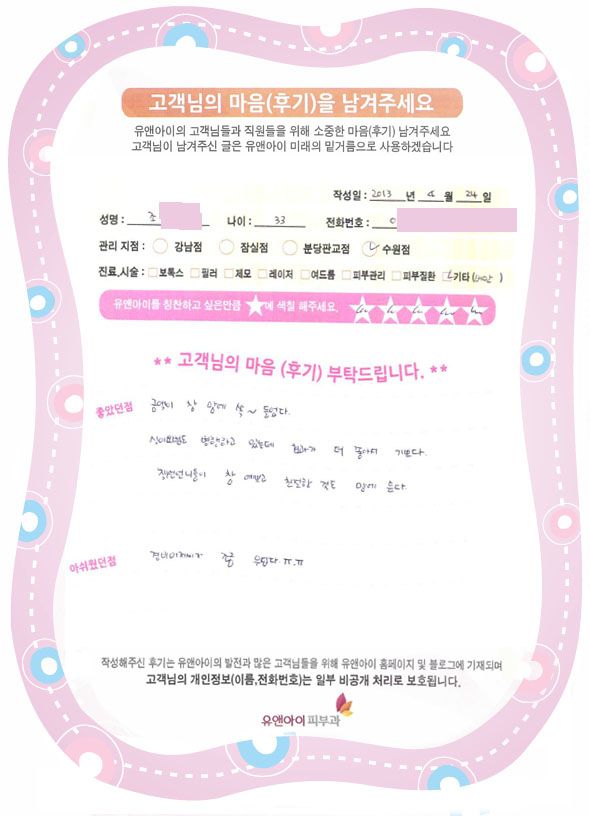 고객님의 마음(후기)을 남겨주세요
유앤아이의 고객님들과 직원들을 위해 소중한 마음(후기) 남겨주세요
고객님이 남겨주신 글은 유앤아이 미래의 밑거름으로 사용하겠습니다
작성일 : 2013 년 4 월 24 일
성명 : 조 나이 : 33 전화번호 : 0
관리 지점 : 강남점 잠실점 분당판교점 수원점
진료,시술 : 보톡스 필러 제모 레이저 여드름 피부관리 피부질환 기타 ( )
유앤아이를 칭찬하고 싶은만큼 ★에 색칠 해주세요.
** 고객님의 마음 (후기) 부탁드립니다. **
좋았던점 금액이 참 맘에 쏙~ 들었다.
식이요법도 병행하고 있는데 효과가 더 좋아서 기쁘다.
직원언니들이 참 예쁘고 친절한 것도 맘에 든다.
아쉬웠던점 경비아저씨가 조금 무섭다 ㅠ.ㅠ
작성해주신 후기는 유앤아이의 발전과 많은 고객님들을 위해 유앤아이 홈페이지 및 블로그에 기재되며
고객님의 개인정보(이름,전화번호)는 일부 비공개 처리로 보호됩니다.
유앤아이피부과